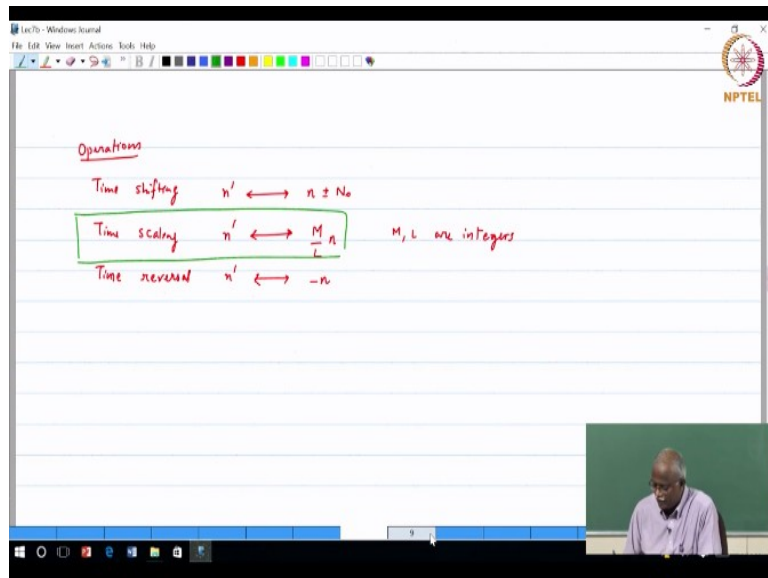 Lec7b - Windows Journal
File Edit View Insert Actions Tools Help
B I
NPTEL
Operations
Time shifting n' ⟷ n ± N₀
Time scaling n' ⟷ M/L n M, L are integers
Time reversal n' ⟷ -n
9